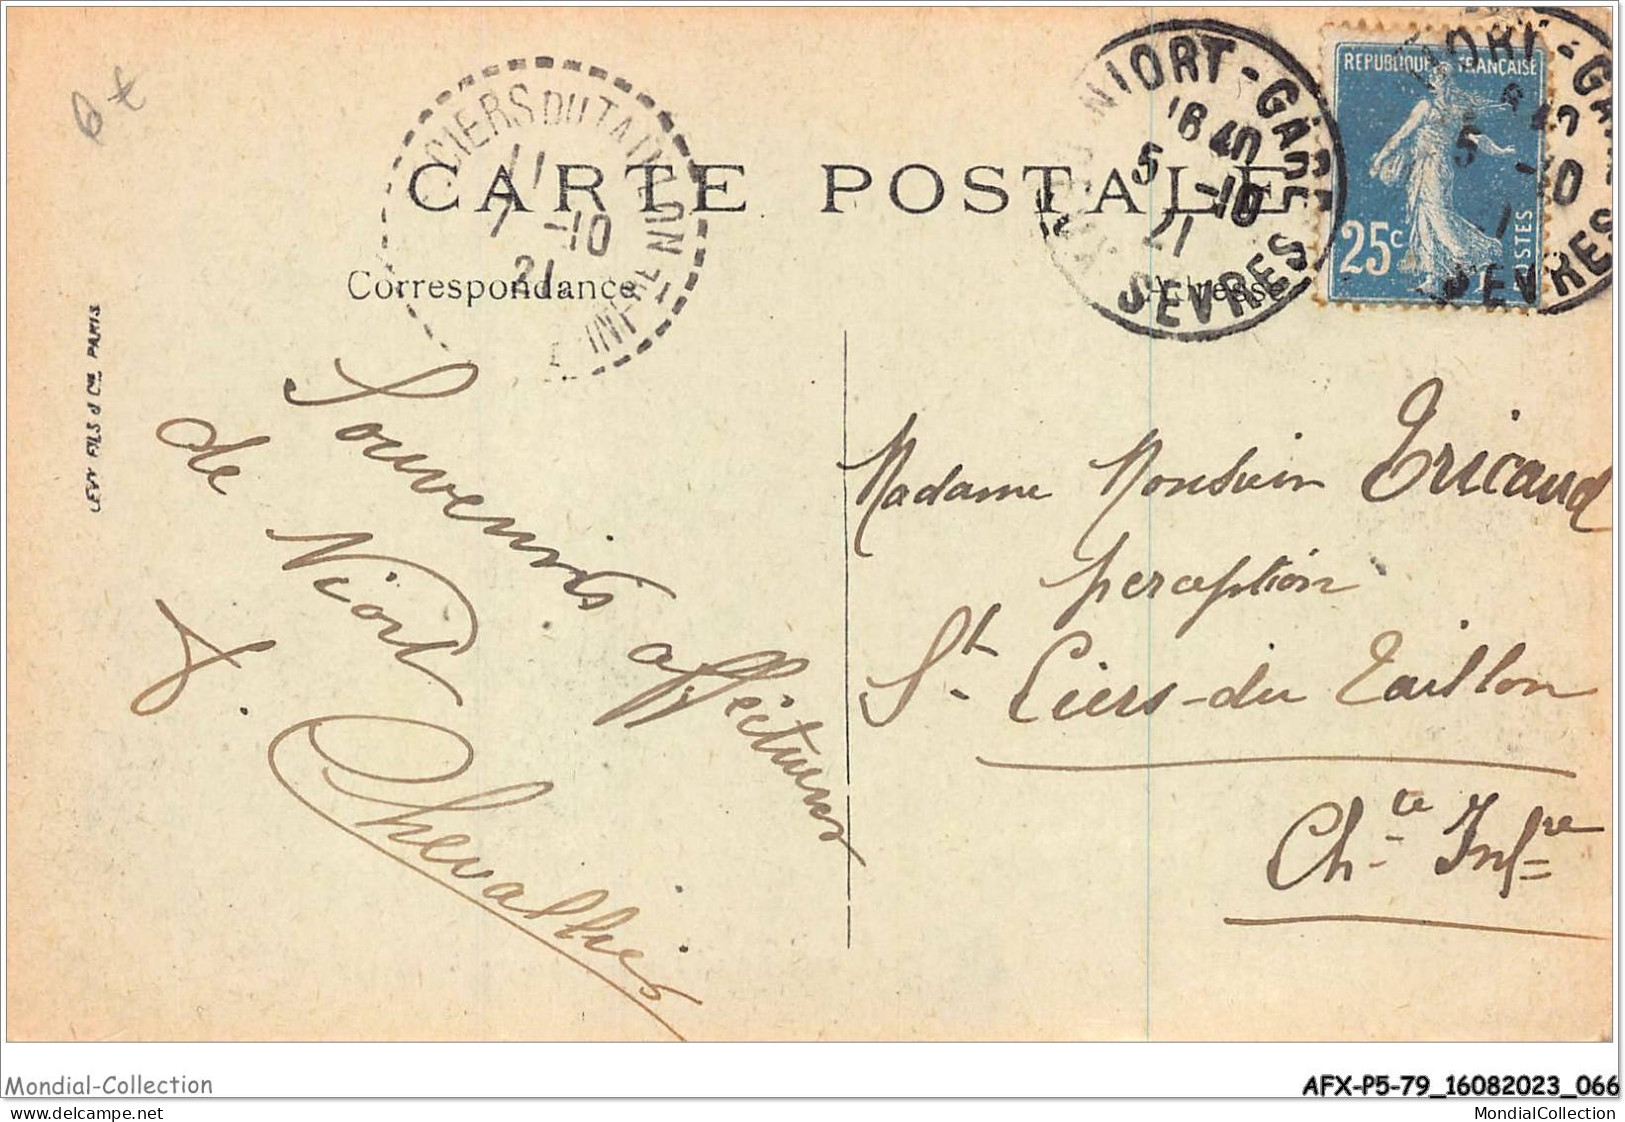 CARTE POSTALE
Correspondance
Adresse
CIERS DU TAILLON
11
7 -10
21
INFRE
NIORT-GARE
16 40
5 -10
21
SEVRES
REPUBLIQUE FRANÇAISE
25c
POSTES
LEVY FILS & Cie PARIS
Souvenirs affectueux
de Niort
Chevallier
Madame Monsieur Tricaud
perception
St. Ciers-du Taillon
Ch.te Infre
Mondial-Collection
AFX-P5-79_16082023_066
MondialCollection